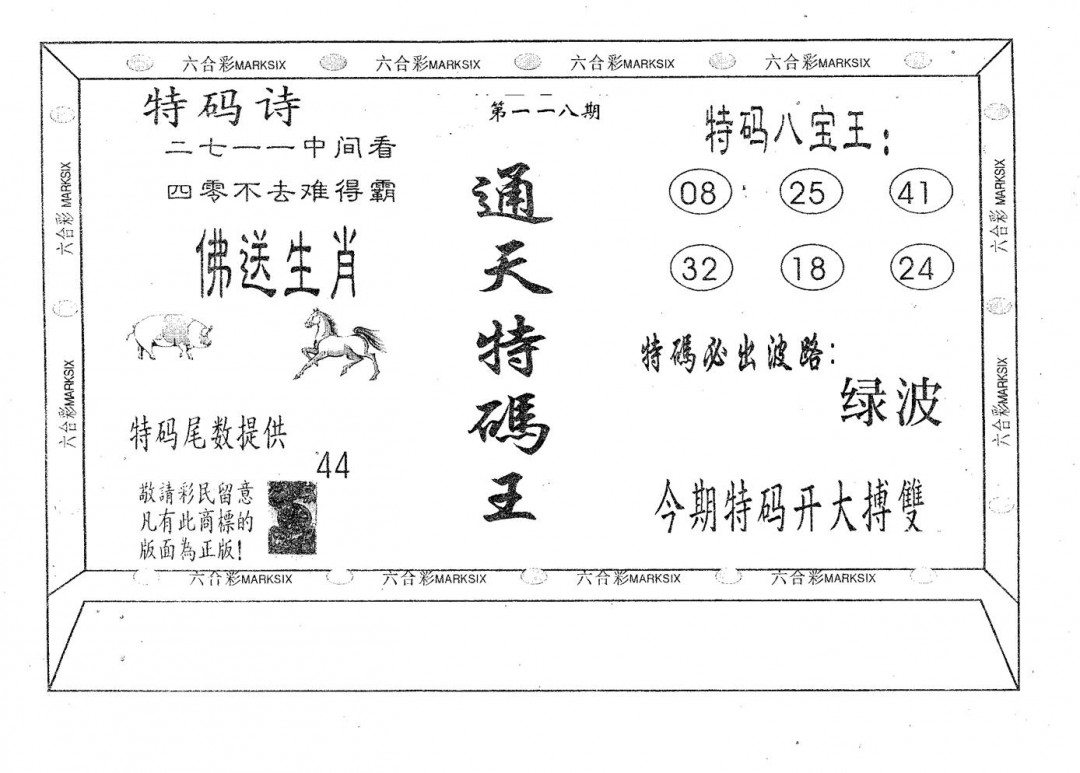 六合彩MARKSIX 六合彩MARKSIX 六合彩MARKSIX 六合彩MARKSIX
特码诗
二七一一中间看
四零不去难得霸
佛送生肖
特码尾数提供
44
敬請彩民留意
凡有此商標的
版面為正版!
第一一八期
通天特碼王
特码八宝王:
08 25 41
32 18 24
特碼必出波路:
绿波
今期特码开大搏雙
六合彩 MARKSIX
六合彩MARKSIX
六合彩 MARKSIX
六合彩MARKSIX
六合彩MARKSIX 六合彩MARKSIX 六合彩MARKSIX 六合彩MARKSIX